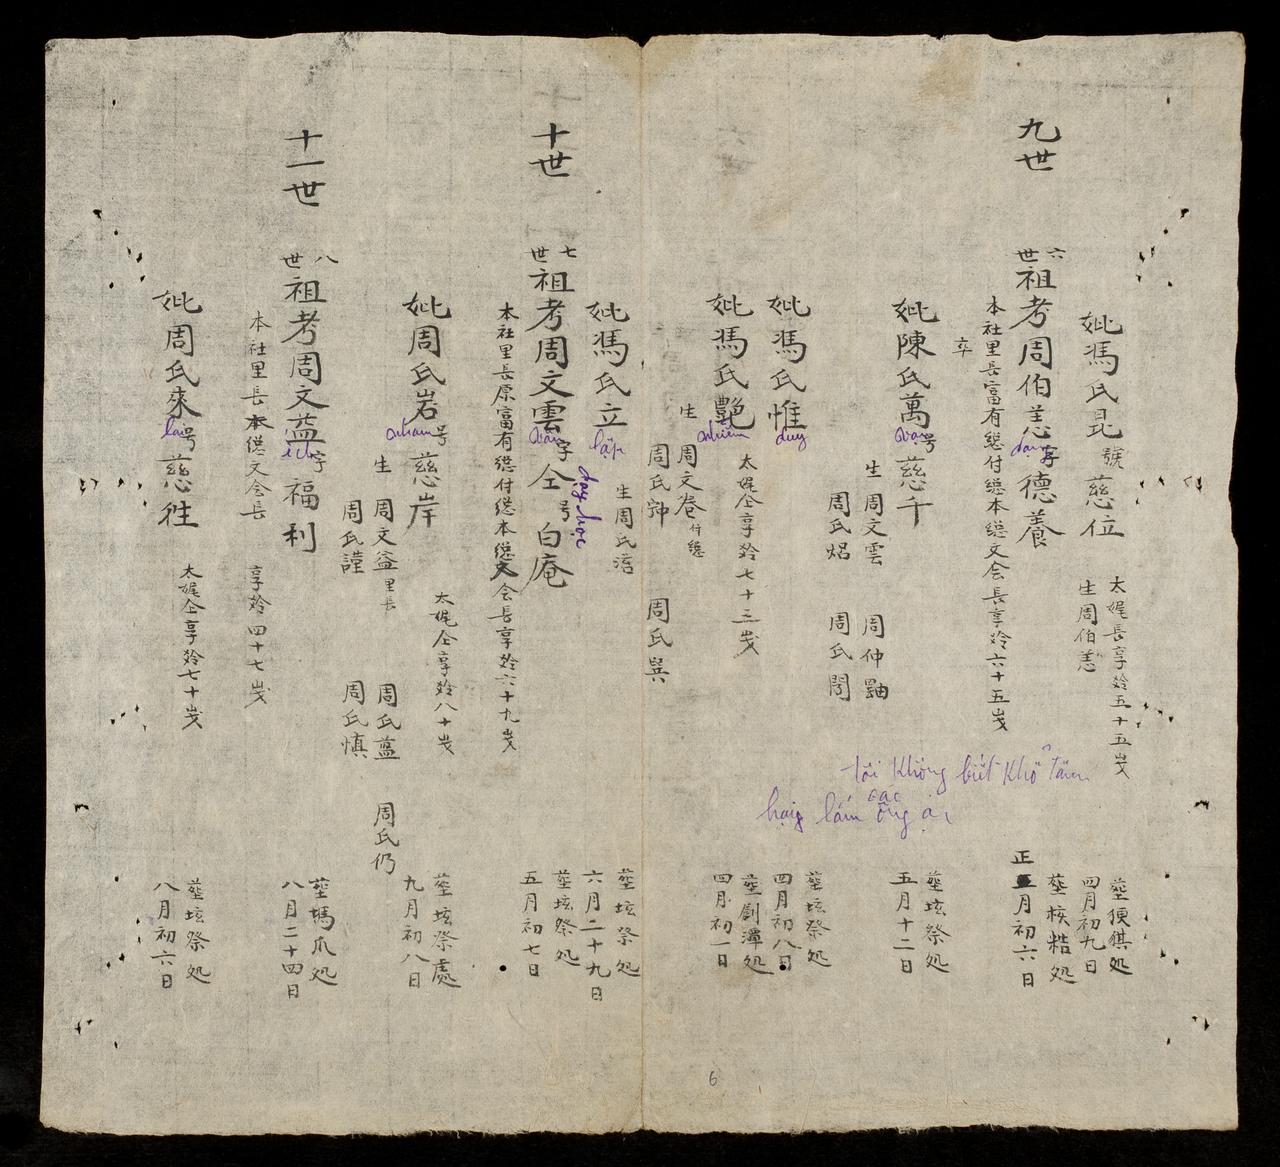 妣馮氏昆號慈位
太娓長享姈五十五歲
生周伯恙
塟便錤処
四月初九日
九世
六世祖考周伯恙字德養
dạng
本社里長富有總付總本總文会長享姈六十五歲
卒
塟核糙処
正月初六日
妣陳氏萬号慈千
vạn
生周文雲 周仲
周氏炤 周氏
塟垓祭処
五月十二日
妣馮氏惟
duy
塟垓祭処
四月初八日
妣馮氏艷
nhiễm
太娓仝享姈七十三歲
塟創潭処
四月初一日
生周文卷付總
周氏 周氏
妣馮氏立
lập
生周氏
塟垓祭処
六月二十九日
十世
七世祖考周文雲字仝号白庵
vân
dạy học
本社里長原富有總付總本總文会長享姈六十九歲
塟垓祭処
五月初七日
妣周氏岩号慈岸
nham
太娓仝享姈八十歲
生周文益里長 周氏藍 周氏仍
周氏謹 周氏慎
塟垓祭處
九月初八日
十一世
八世祖考周文益字福利
ích
本社里長本總文会長 享姈四十七歲
塟塢爪処
八月二十四日
妣周氏來号慈徃
lai
太娓仝享姈七十歲
塟垓祭処
八月初六日
tôi không biết khổ tâm
lắm các ông ạ
6